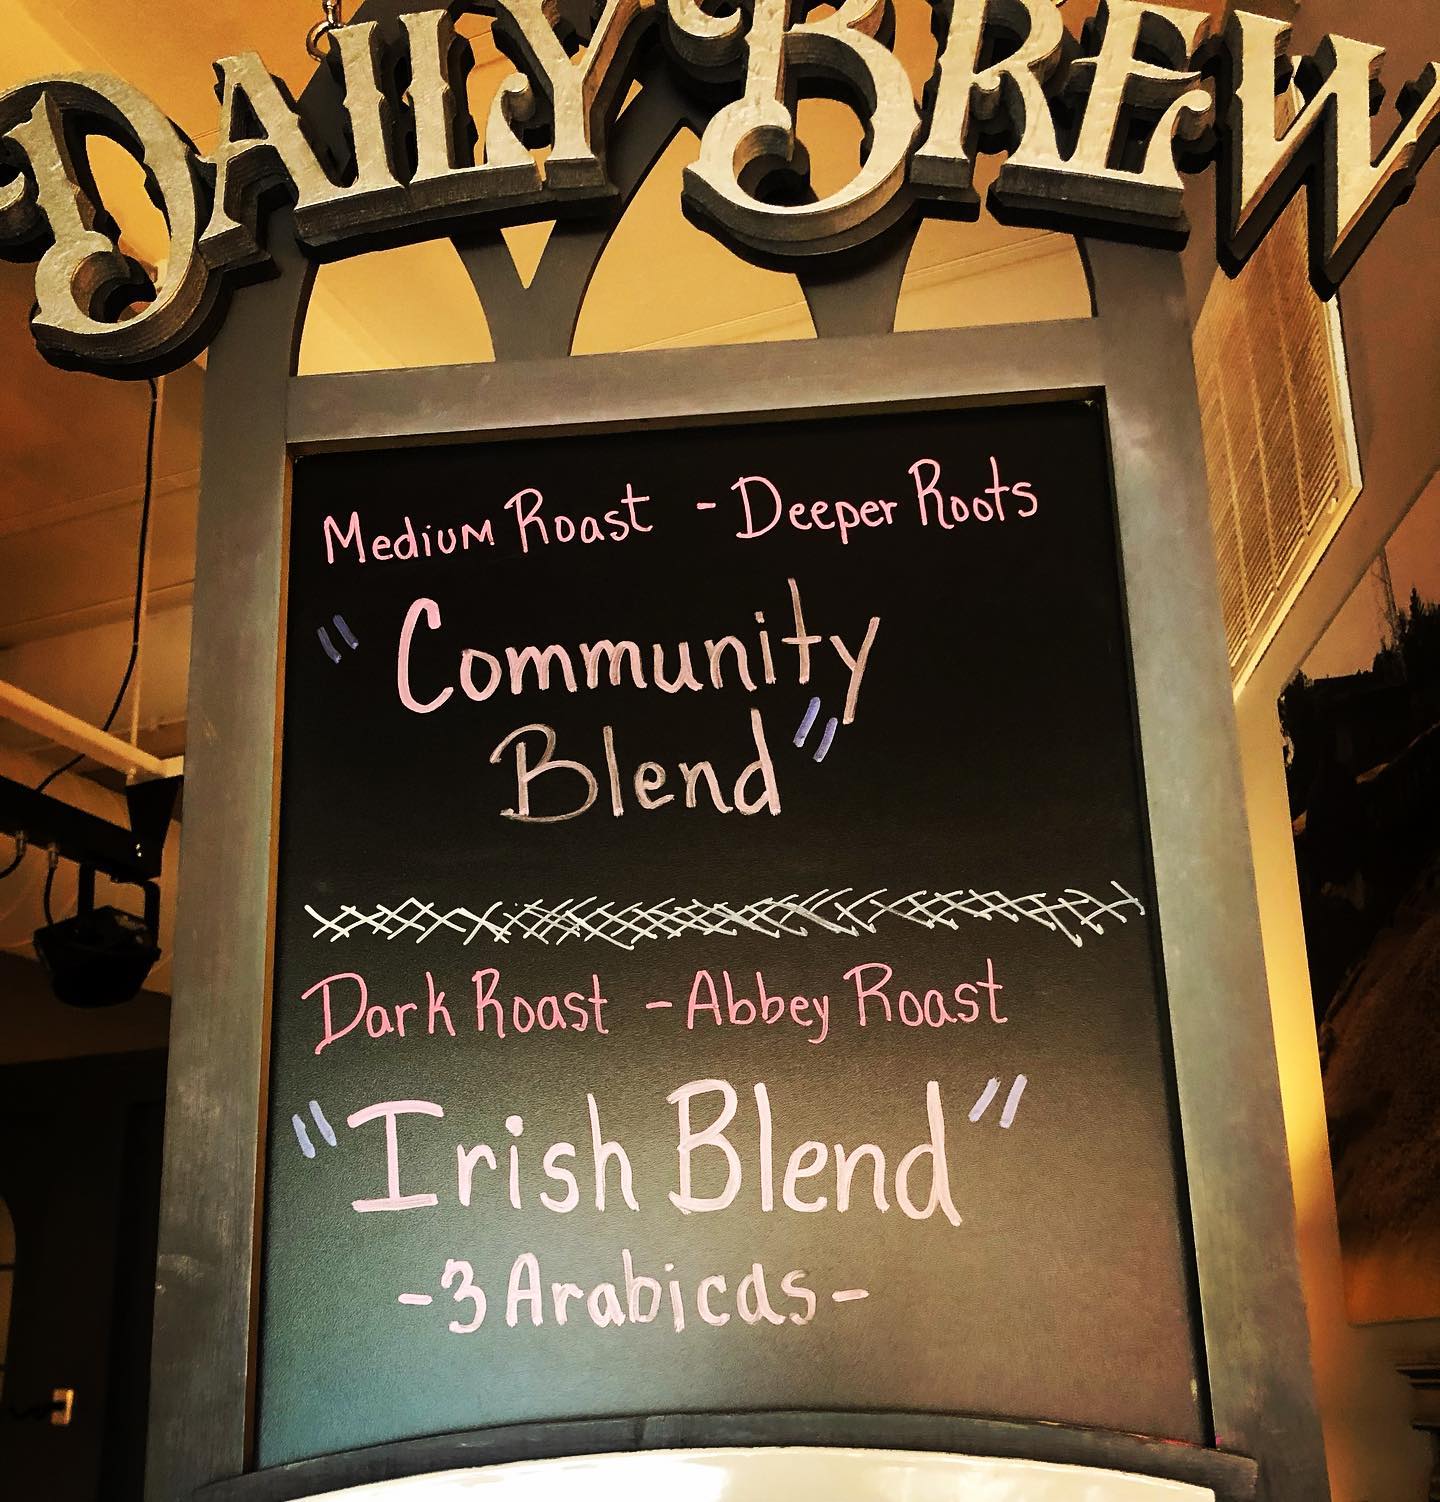 DAILY BREW
Medium Roast - Deeper Roots
"Community
Blend"
Dark Roast - Abbey Roast
"Irish Blend"
- 3 Arabicas -